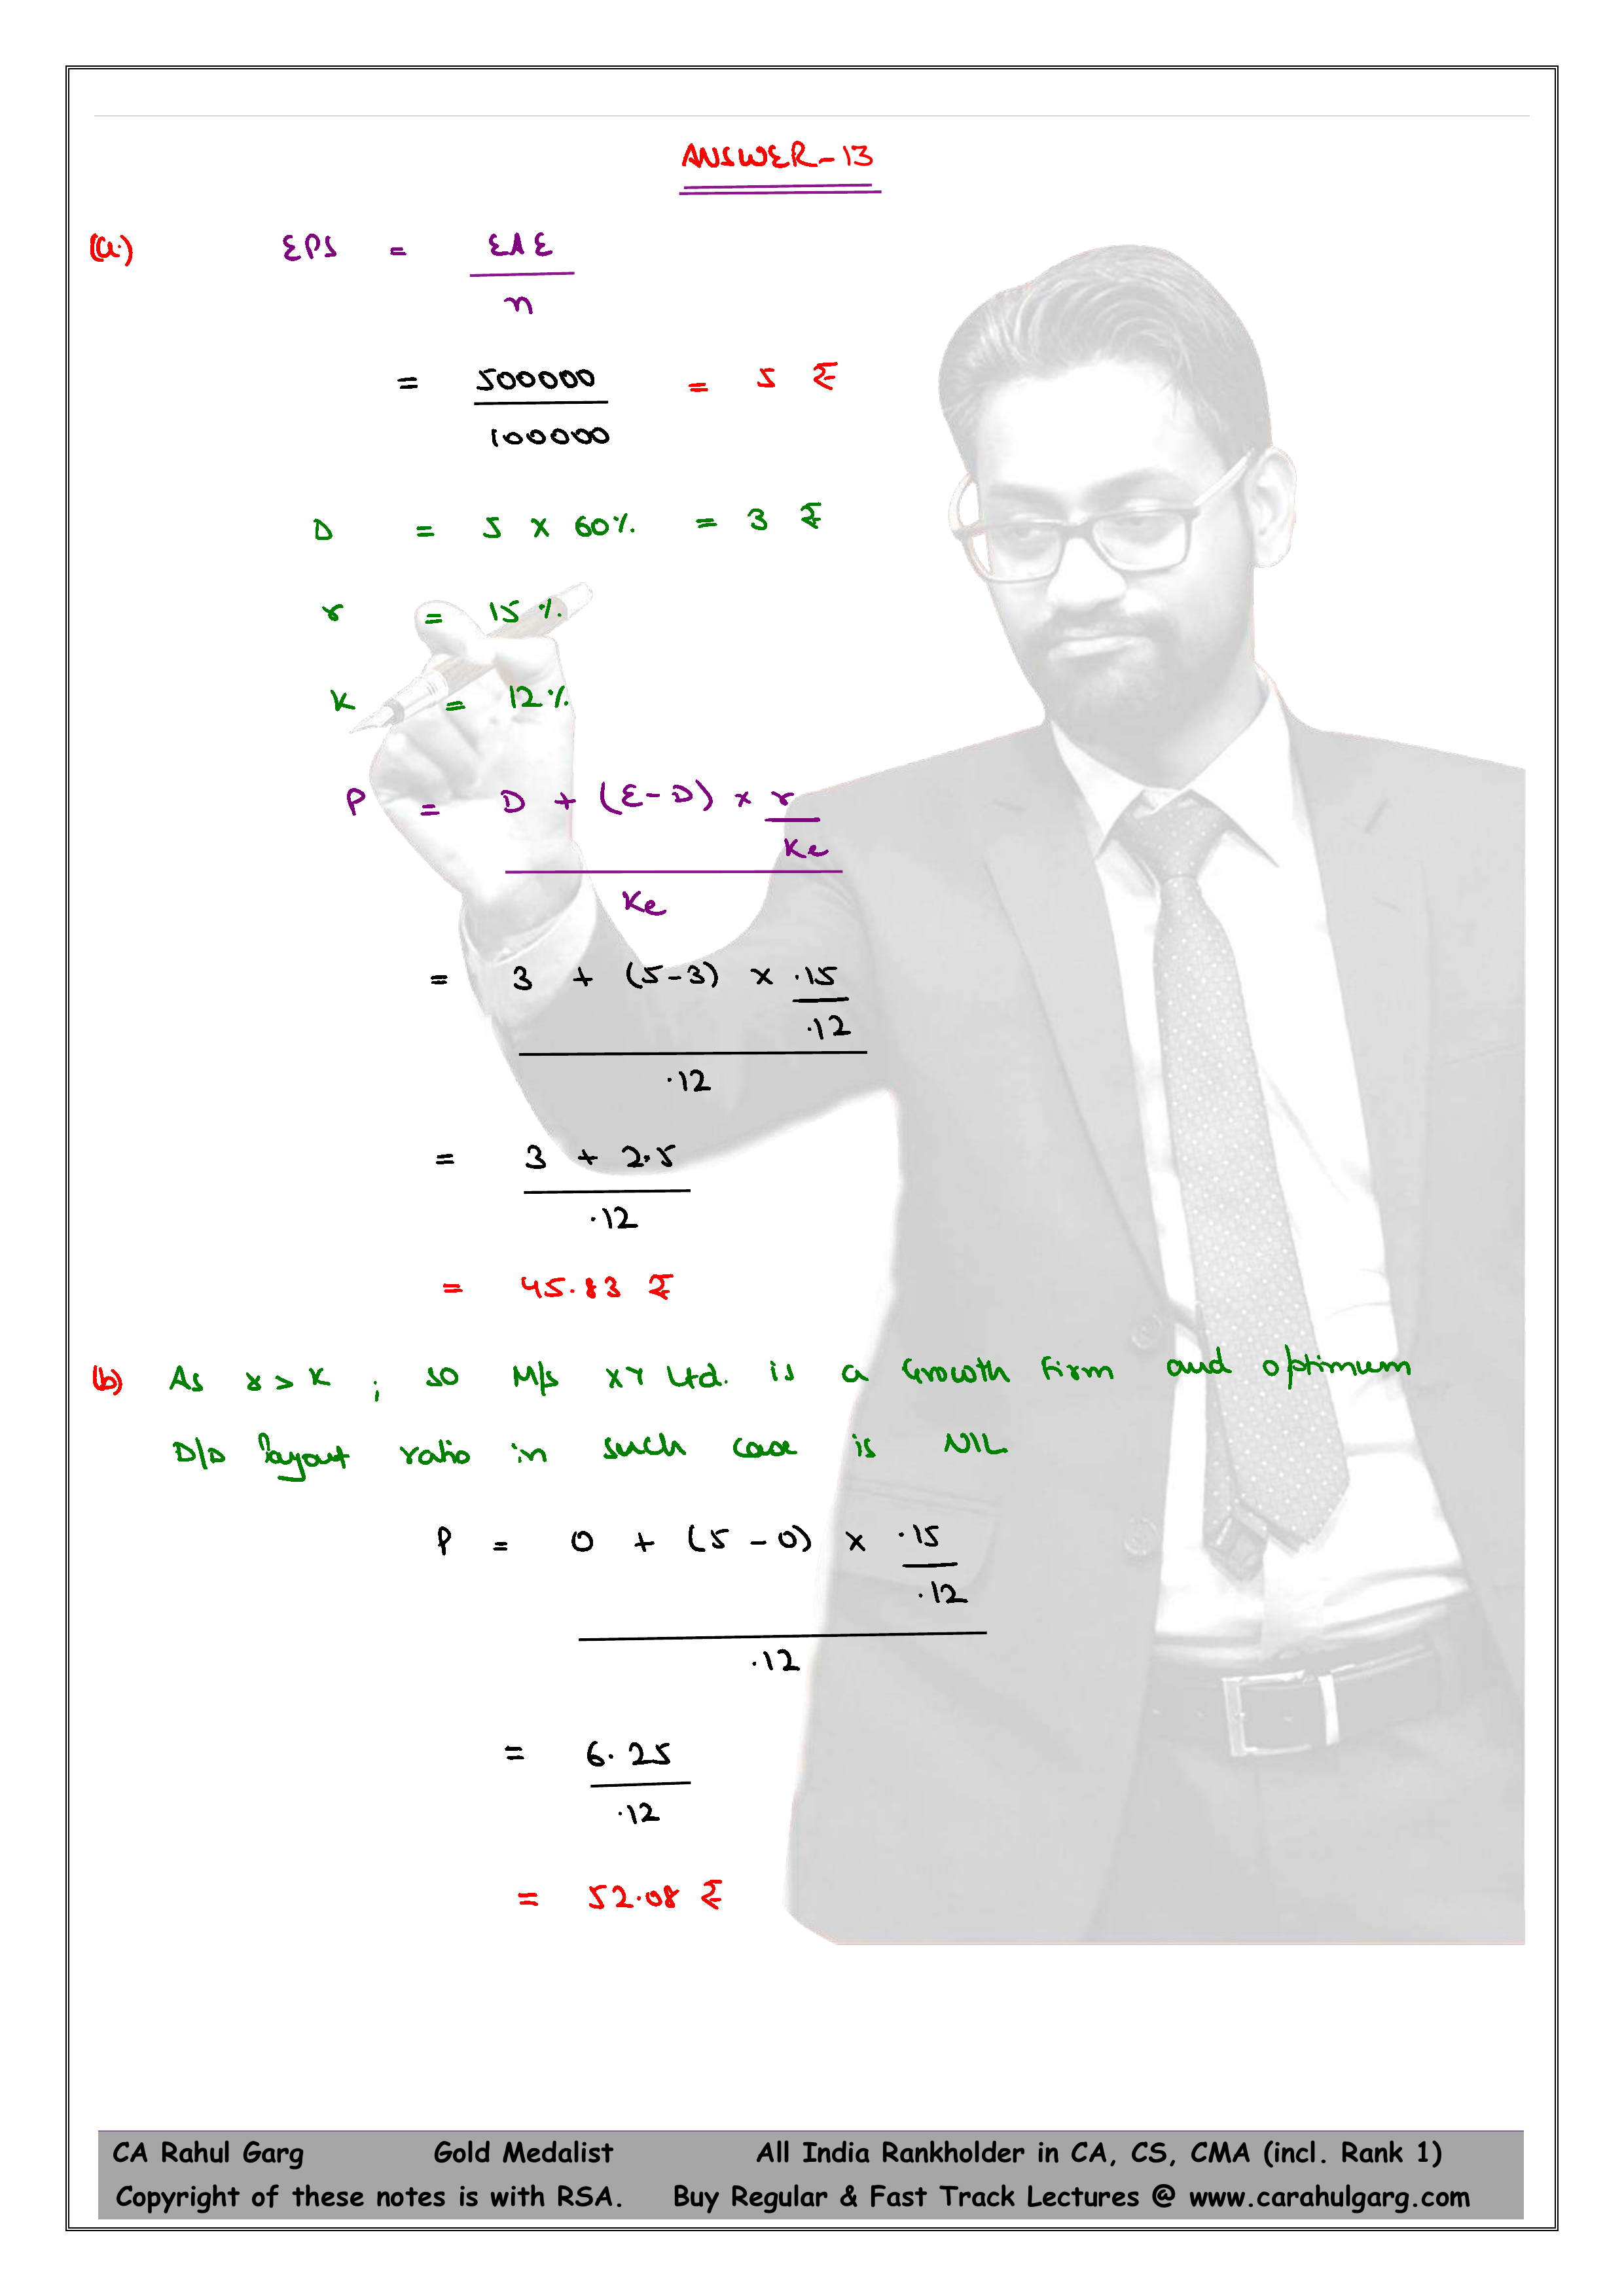 ANSWER-13
(a.) EPS = EAE
n
= 500000 = 5 ₹
100000
D = 5 x 60% = 3 ₹
r = 15 %
K = 12%
P = D + (E-D) x r
Ke
Ke
= 3 + (5-3) x .15
.12
.12
= 3 + 2.5
.12
= 45.83 ₹
(b) As r > K ; so M/s XY Ltd. is a Growth Firm and optimum
D/D Payout ratio in such case is NIL
P = 0 + (5 - 0) x .15
.12
.12
= 6.25
.12
= 52.08 ₹
CA Rahul Garg Gold Medalist All India Rankholder in CA, CS, CMA (incl. Rank 1)
Copyright of these notes is with RSA. Buy Regular & Fast Track Lectures @ www.carahulgarg.com